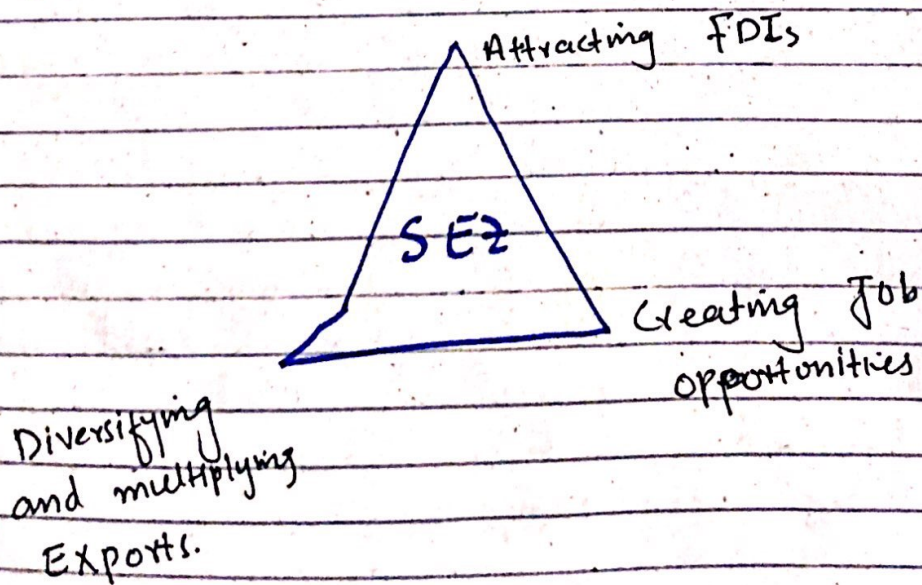 Attracting FDIs
SEZ
Creating Job
opportunities
Diversifying
and multiplying
Exports.